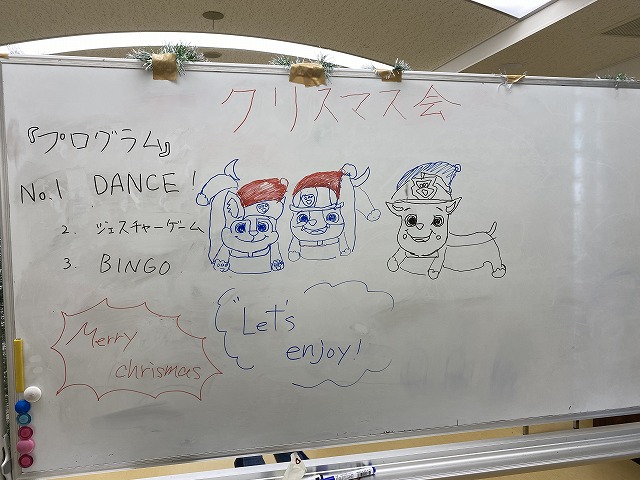 クリスマス会
『プログラム』
No.1 DANCE!
2. ジェスチャーゲーム
3. BINGO
Merry
chrismas
"Let's
enjoy!